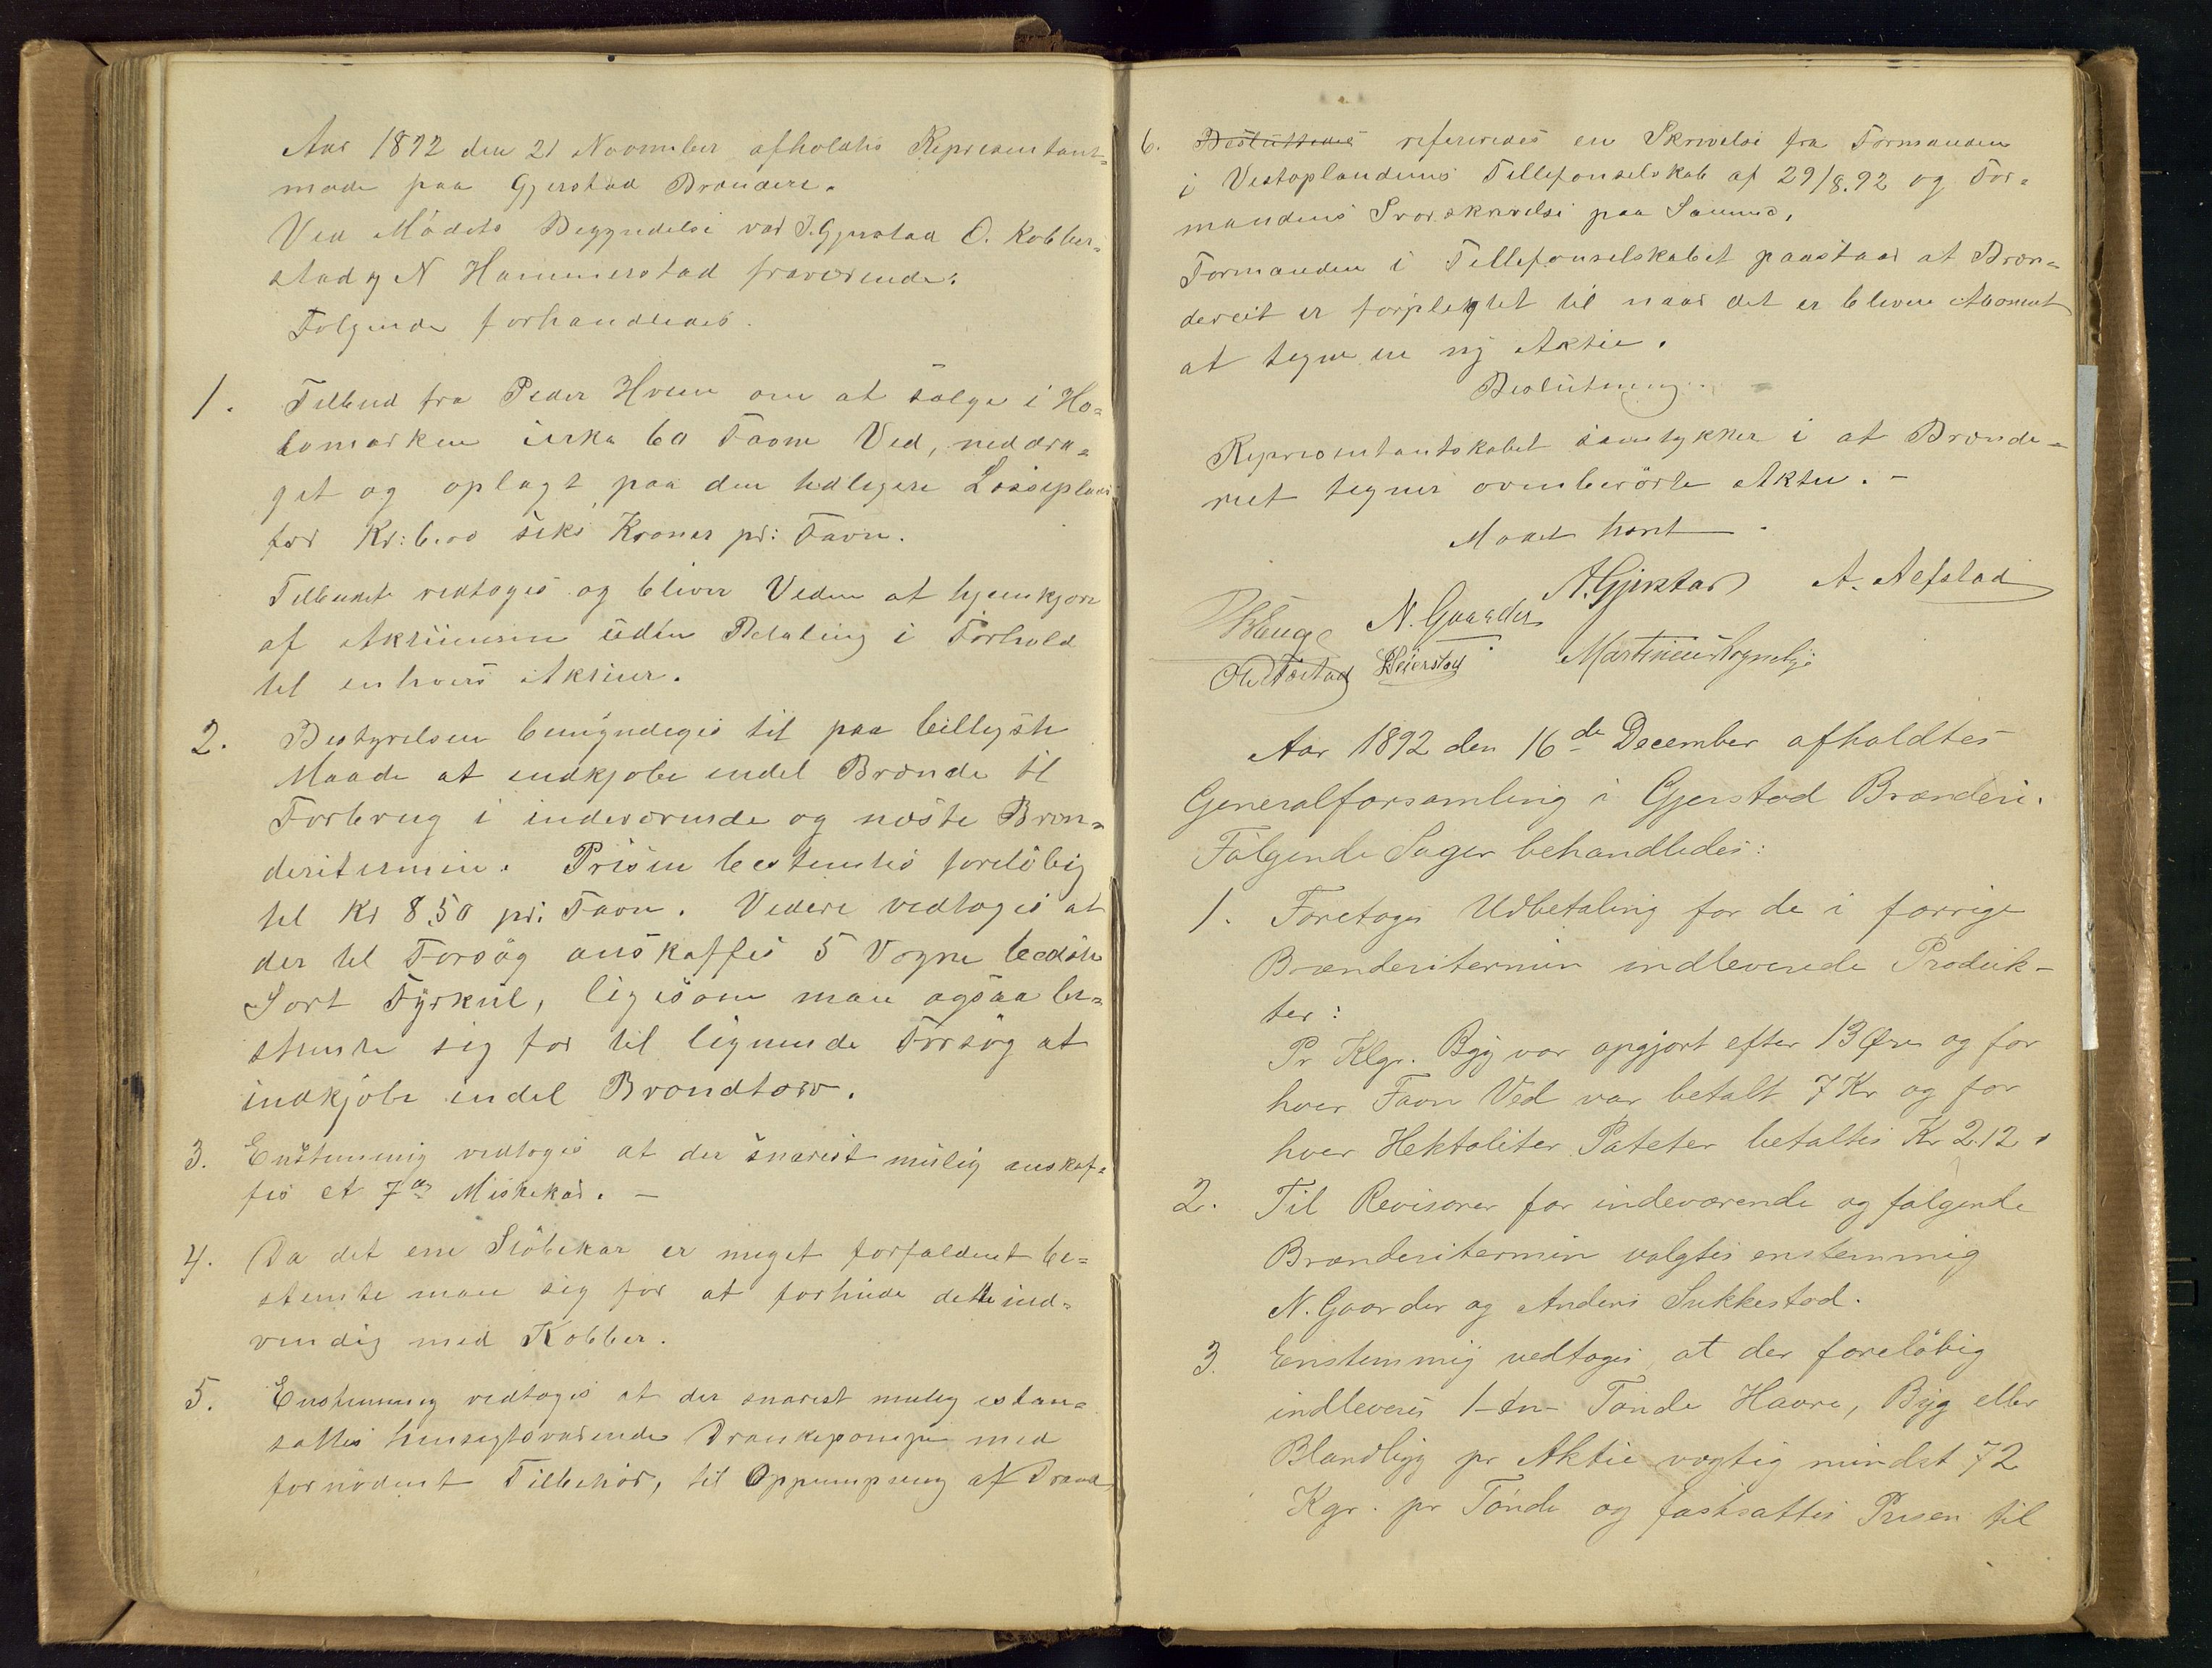 Aar 1892 den 21 November afholdtes Representant-
møde paa Gjerstad Brænderi.
Ved Mödets Begyndelse var J. Gjerstad O. Kobber-
stad og N Hammerstad fraværende.
Følgende forhandledes.
1. Tilbud fra Peder Hveem om at sælge i Ho-
lamarken cirka 60 Favne Ved, neddra-
get og oplagt paa den beligere Læsseplads
for Kr: 6.00 seks Kroner pr: Favn.
Tilbudet vedtoges og bliver Veden at hjemkjøre
af Aktiierne uden Betaling i Forhold
til enhvers Aktier.
2. Bestyrelsen bemyndiges til paa billigste
Maade at indkjøbe endel Brænde til
Forbrug i indeværende og næste Bræn-
deritermin. Prisen bestemtes foreløbig
til Kr 8,50 pr. Favn. Videre vedtoges at
der til Forsøg anskaffes 5 Vogne bedste
Sort Fyrkul, ligesom man ogsaa be-
stemte sig for til lignende Forsøg at
indkjøbe endel Brændtorv.
3. Enstemmig vedtoges at der snarest mulig anskaf-
fes et 7de Meskekar. —
4. Da det ene Stöbekar er meget forfaldent be-
stemte man sig for at forhude dette ind-
vendig med Kobber.
5. Enstemmig vedtoges at der snarest mulig istan-
sattes hensigtsvarende Drankepompe med
fornödent Tilbehör, til Oppumpning af Drank
6. Besluttedes refereredes en Skrivelse fra Formanden
i Vestoplandenes Tellefonselskab af 29/8.92 og For-
mandens Svarskrivelse paa Samme,
Formanden i Tellefonselskabet paastaar at Bræn-
deriet er forpligtet til naar det er bleven Abonent
at tegne en ny Aktie.
Beslutning.
Representantskabet samtykker i at Brænde-
riet tegner ovenberörte Aktie. —
Mødet hævet
A. Gjerstad A. Alfstad
N. Gaarder
Martinius Sognelye
Aar 1892 den 16de December afholdtes
Generalforsamling i Gjerstad Brænderi.
Følgende Sager behandledes:
1. Foretoges Udbetaling for de i forrige
Brænderitermin indleverede Produk-
ter:
Pr Klgr. Byg var opgjort efter 13 Øre og for
hver Favn Ved var betalt 7 Kr og for
hver Hektoliter Poteter betaltes Kr 2.12.
2. Til Revisorer for indeværende og følgende
Brænderitermin valgtes enstemmig
N. Gaarder og Anders Sukkestad.
3. Enstemmig vedtoges, at der foreløbig
indleveres 1-en- Tønde Havre, Byg eller
Blandbyg pr Aktie vægtig mindst 72
Kgr. pr Tønde og fastsattes Prisen til